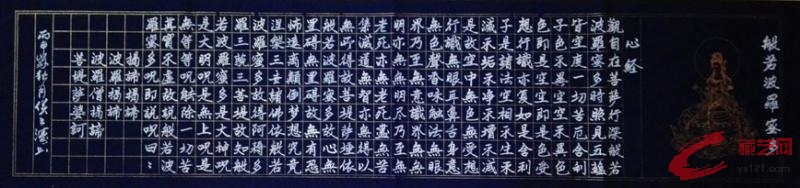 般若波羅蜜多
心經
觀自在菩薩行深般若
波羅蜜多時照見五蘊
皆空度一切苦厄舍利
子色不異空空不異色
色即是空空即是色受
想行識亦復如是舍利
子是諸法空相不生不
滅不垢不净不增不減
是故空中無色無受想
行識無眼耳鼻舌身意
無色聲香味觸法無眼
界乃至無意識界無無
明亦無無明盡乃至無
老死亦無老死盡無苦
集滅道無智亦無得以
無所得故菩提薩埵依
般若波羅蜜多故心無
罣礙無罣礙故無有恐
怖遠離顛倒夢想究竟
涅槃三世諸佛依般若
波羅蜜多故得阿耨多
羅三藐三菩提故知般
若波羅蜜多是大神呪
是大明呪是無上呪是
無等等呪能除一切苦
真實不虛故說般若波
羅蜜多呪即說呪曰:
揭諦揭諦
波羅揭諦
波羅僧揭諦
菩提薩婆訶
丙申
藏艺网
ys121.com